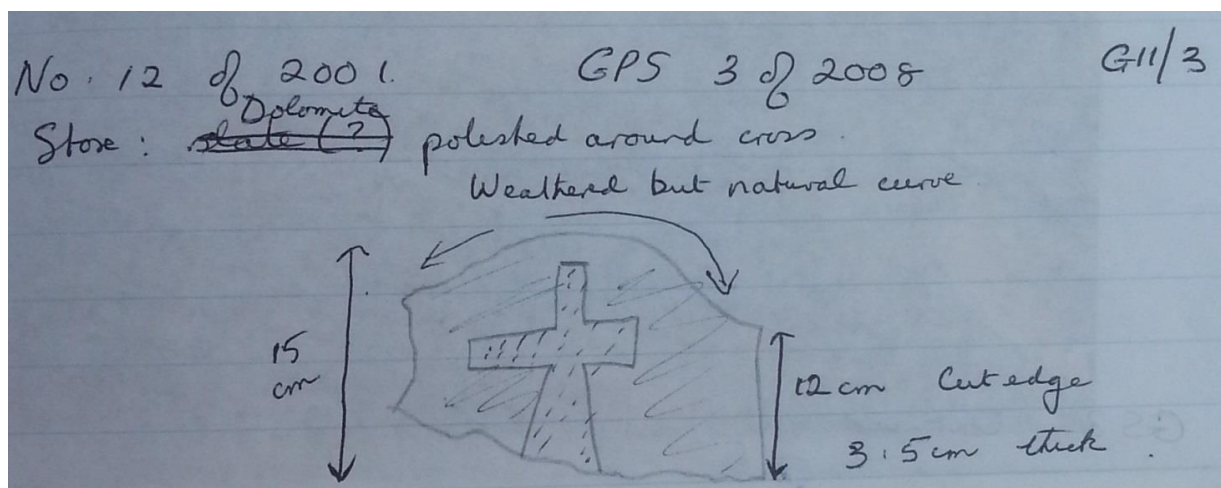 No. 12 of 2001. GPS 3 of 2008 G11/3
Dolomite
Stone: slate (?) polished around cross.
Weathered but natural curve.
15
cm
12 cm Cut edge
3.5cm thick.